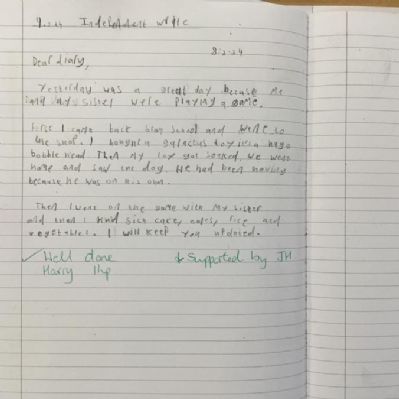 9.2.24 Independent write
8.2.24
Dear diary,
Yesterday was a great day because me
and my sister were playing a game.
First I came back from school and went to
the shop. I bought a galactus toy with a huge
bobble head. Then my got soaked, we went
home and saw the dog. He had been
because he was on his own.
Then I went on the game with my sister
and then I had rice and
vegetables. I will keep you updated.
✓ Well done
↓ Supported by JH
Harry 1hp